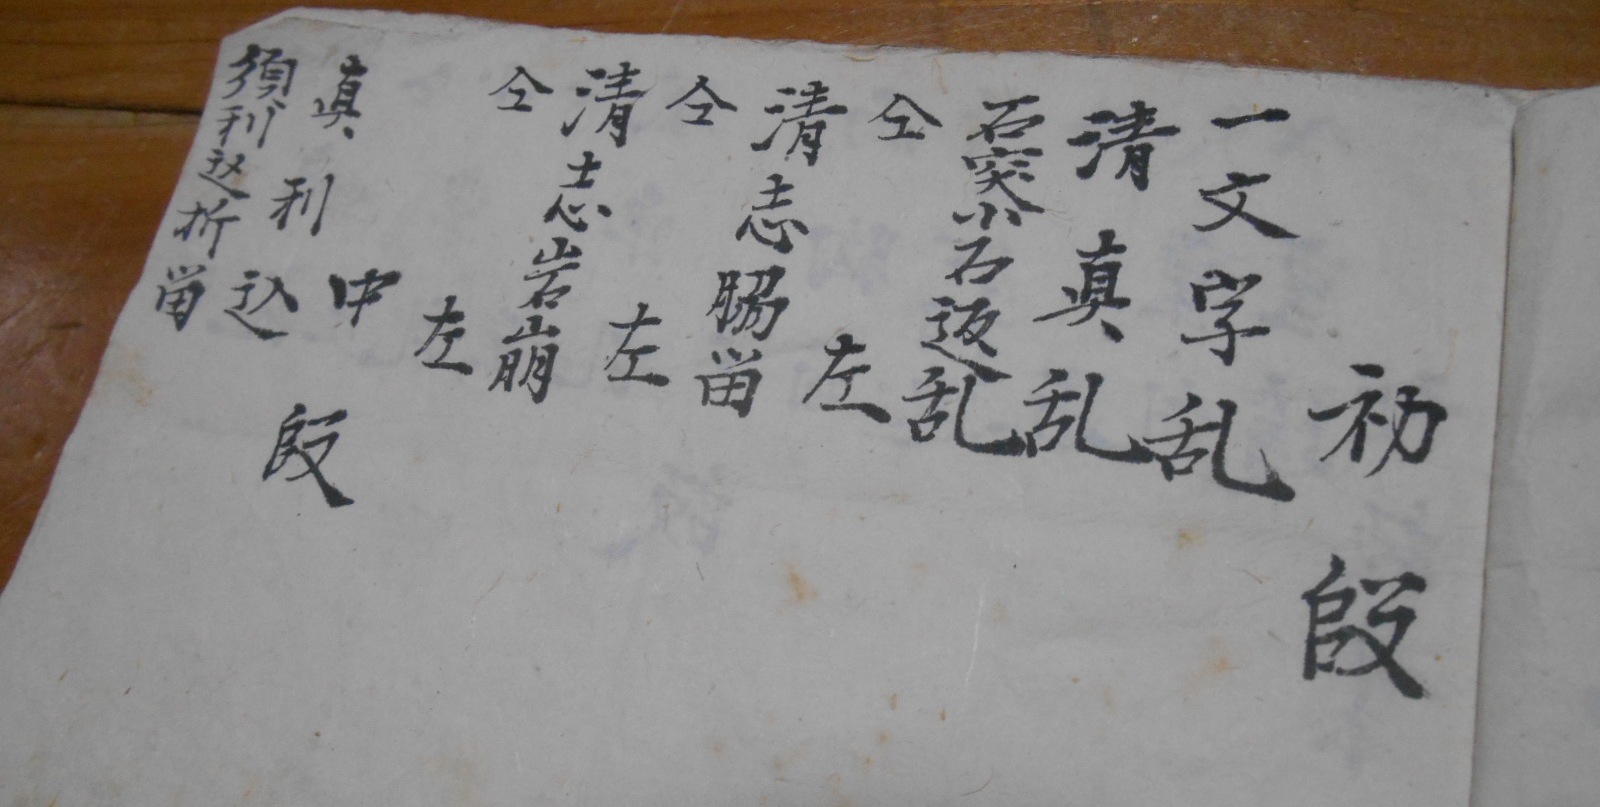 初段
一文字乱
清眞乱
石突小石返乱
仝左
清志脇畄
仝左
清志岩崩
仝左
中段
眞利込
須利込折畄